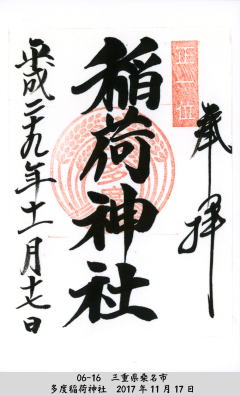 奉拝
正一位
稲荷神社
平成二十九年十一月十七日
06-16 三重県桑名市
多度稲荷神社 2017年11月17日